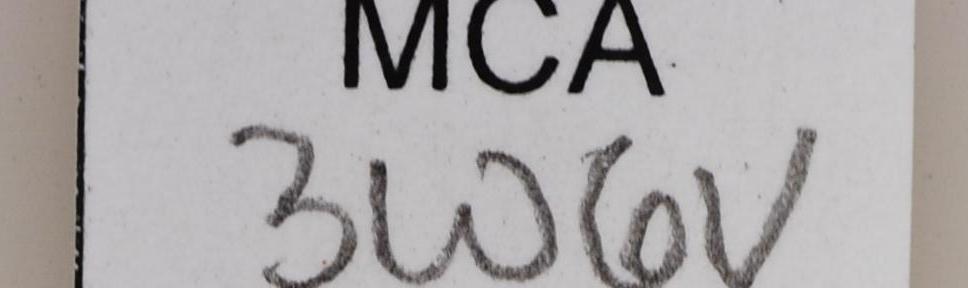 MCA
3W6V